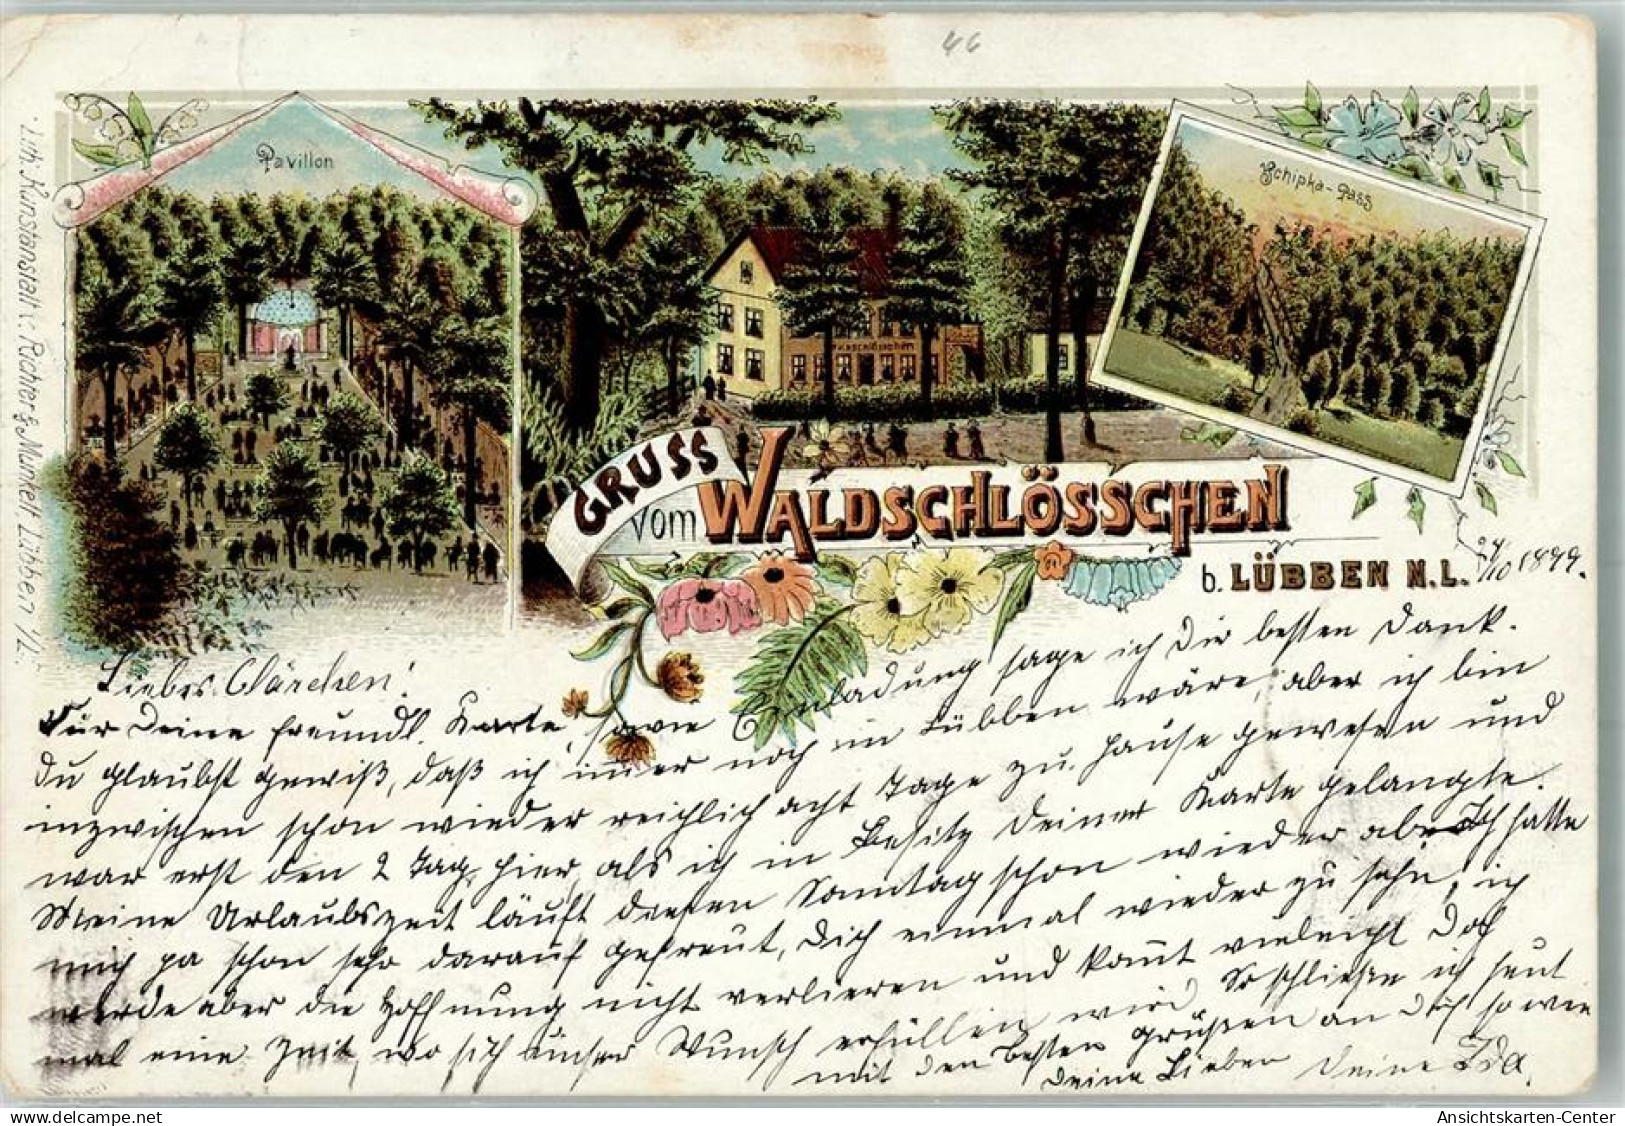 46
Lith. Kunstanstalt v. Richter & Munkelt, Lübben i/L.
Pavillon
Schipka-Pass
WALDSCHLÖSSCHEN
GRUSS
vom WALDSCHLÖSSCHEN
b. LÜBBEN N.L.
24/10 1899.
Liebes Clärchen!
Für Deine freundl. Karte, sowie Einladung sage ich Dir besten Dank.
Du glaubst gewiß, daß ich im̄er noch in Lübben wäre, aber ich bin
inzwischen schon wieder reichlich acht Tage zu Hause gewesen und
war erst den 2 Tag hier, als ich in Besitz Deiner Karte gelangte.
Meine Urlaubszeit läuft diesen Sonntag schon wieder ab. Ich hatte
mich ja schon sehr darauf gefreut, Dich einmal wieder zu sehn, ich
werde aber die Hoffnung nicht verlieren und kom̄t vieleicht doch
mal eine Zeit, wo sich unser Wunsch erfüllen wird. So schließe ich heut
mit den besten Grüßen an Dich sowie
Deine Lieben Deine Ida.
Ansichtskarten-Center
www.delcampe.net